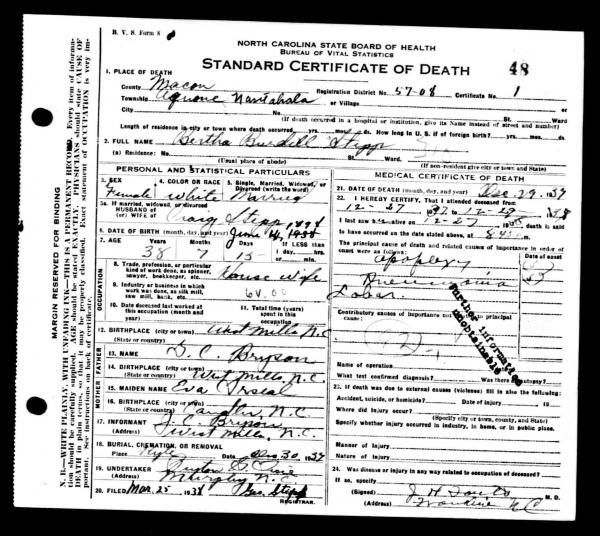 B. V. S. Form 8
NORTH CAROLINA STATE BOARD OF HEALTH
BUREAU OF VITAL STATISTICS
STANDARD CERTIFICATE OF DEATH 48
1. PLACE OF DEATH
County Macon Registration District No. 57-08 Certificate No. 1
Township Aquone Nantahala or Village
City No. St. Ward
(If death occurred in a hospital or institution, give its Name instead of street and number)
Length of residence in city or town where death occurred yrs. mos. ds. How long in U. S. if of foreign birth? yrs. mos. ds.
2. FULL NAME Bertha Burdell Stepp
(a) Residence: No. St. Ward.
(Usual place of abode) (If non-resident give city or town and State)
PERSONAL AND STATISTICAL PARTICULARS
3. SEX 4. COLOR OR RACE 5. Single, Married, Widowed, or Divorced (write the word)
Female White Married
5a. If married, widowed, or divorced
HUSBAND of
(or) WIFE of Craig Stepp
6. DATE OF BIRTH (month, day, and year) June 14,
7. AGE 38 7 15 If LESS than 1 day, hrs. or min.
OCCUPATION
8. Trade, profession, or particular kind of work done, as spinner, sawyer, bookkeeper, etc. House wife
9. Industry or business in which work was done, as silk mill, saw mill, bank, etc.
10. Date deceased last worked at this occupation (month and year)
11. Total time (years) spent in this occupation
12. BIRTHPLACE (city or town) West Mills N.C
(State or country)
FATHER
13. NAME J. C. Bryson
14. BIRTHPLACE (city or town) West Mills, N.C.
(State or country)
MOTHER
15. MAIDEN NAME Eva
16. BIRTHPLACE (city or town) N.C.
(State or country)
17. INFORMANT J. C. Bryson
(Address) West Mills N.C.
18. BURIAL, CREMATION, OR REMOVAL
Place Kyle Date Dec 30, 1937
19. UNDERTAKER
(Address) Murphy N.C.
20. FILED Mar. 25 1938 Geo. Stepp
REGISTRAR.
MEDICAL CERTIFICATE OF DEATH
21. DATE OF DEATH (month, day, and year) Dec. 29, 1937
22. I HEREBY CERTIFY, That I attended deceased from
12-27
I last saw h alive on 12-27 death is said
to have occurred on the date stated above, at m.
The principal cause of death and related causes of importance in order of onset were as follows: Date of onset
apoplexy
Pneumonia
Lobar
Contributory causes of importance not related to principal cause:
Further information unobtainable
Name of operation Date of
What test confirmed diagnosis? Was there an autopsy?
23. If death was due to external causes (violence) fill in also the following:
Accident, suicide, or homicide? Date of injury 19
Where did injury occur?
(Specify city or town, county, and State)
Specify whether injury occurred in industry, in home, or in public place.
Manner of Injury
Nature of Injury
24. Was disease or injury in any way related to occupation of deceased?
If so, specify
(Signed) M. D.
(Address) N C
MARGIN RESERVED FOR BINDING
N. B.—WRITE PLAINLY, WITH UNFADING INK—THIS IS A PERMANENT RECORD. Every item of information should be carefully supplied. AGE should be stated EXACTLY. PHYSICIANS should state CAUSE OF DEATH in plain terms, so that it may be properly classified. Exact statement of OCCUPATION is very important. See instructions on back of certificate.